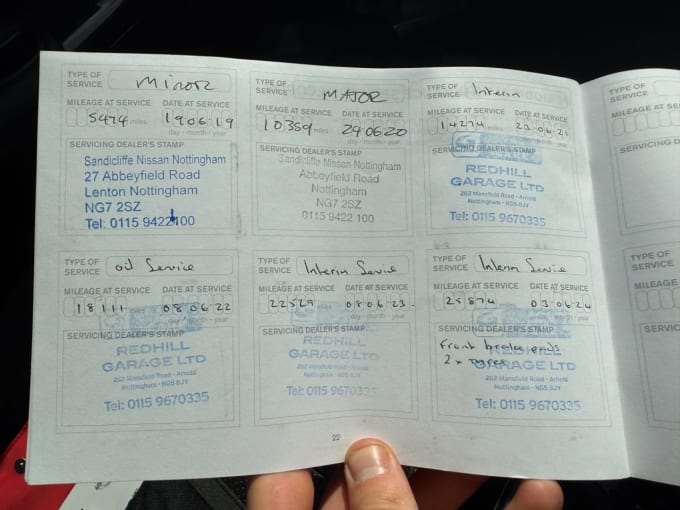 TYPE OF SERVICE Minor
MILEAGE AT SERVICE DATE AT SERVICE
5474 miles 19 06 19
day - month - year
SERVICING DEALER'S STAMP
Sandicliffe Nissan Nottingham
27 Abbeyfield Road
Lenton Nottingham
NG7 2SZ
Tel: 0115 9422100
TYPE OF SERVICE MAJOR
MILEAGE AT SERVICE DATE AT SERVICE
10359 miles 29 06 20
day - month - year
SERVICING DEALER'S STAMP
Sandicliffe Nissan Nottingham
Abbeyfield Road
Nottingham
NG7 2SZ
0115 9422 100
TYPE OF SERVICE Interim
MILEAGE AT SERVICE DATE AT SERVICE
14274 miles 23 06 21
SERVICING DEALER'S STAMP
REDHILL
GARAGE LTD
262 Mansfield Road - Arnold
Nottingham - NG5 8JY
Tel: 0115 9670335
TYPE OF SERVICE oil Service
MILEAGE AT SERVICE DATE AT SERVICE
18111 miles 08 06 22
day - month - year
SERVICING DEALER'S STAMP
REDHILL
GARAGE LTD
262 Mansfield Road - Arnold
Nottingham - NG5 8JY
Tel: 0115 9670335
TYPE OF SERVICE Interim Service
MILEAGE AT SERVICE DATE AT SERVICE
22529 miles 08 06 23
day - month - year
SERVICING DEALER'S STAMP
REDHILL
GARAGE LTD
262 Mansfield Road - Arnold
Nottingham - NG5 8JY
Tel: 0115 9670335
TYPE OF SERVICE Interim Service
MILEAGE AT SERVICE DATE AT SERVICE
25874 miles 03 06 24
day - month - year
SERVICING DEALER'S STAMP
Front brake pads
2 x tyres
REDHILL
GARAGE LTD
262 Mansfield Road - Arnold
Nottingham - NG5 8JY
Tel: 0115 9670335
22
TYPE OF SERVICE
MILEAGE AT SE
SERVICING D
TYPE OF SERVICE
MILEAGE AT
SERVIC